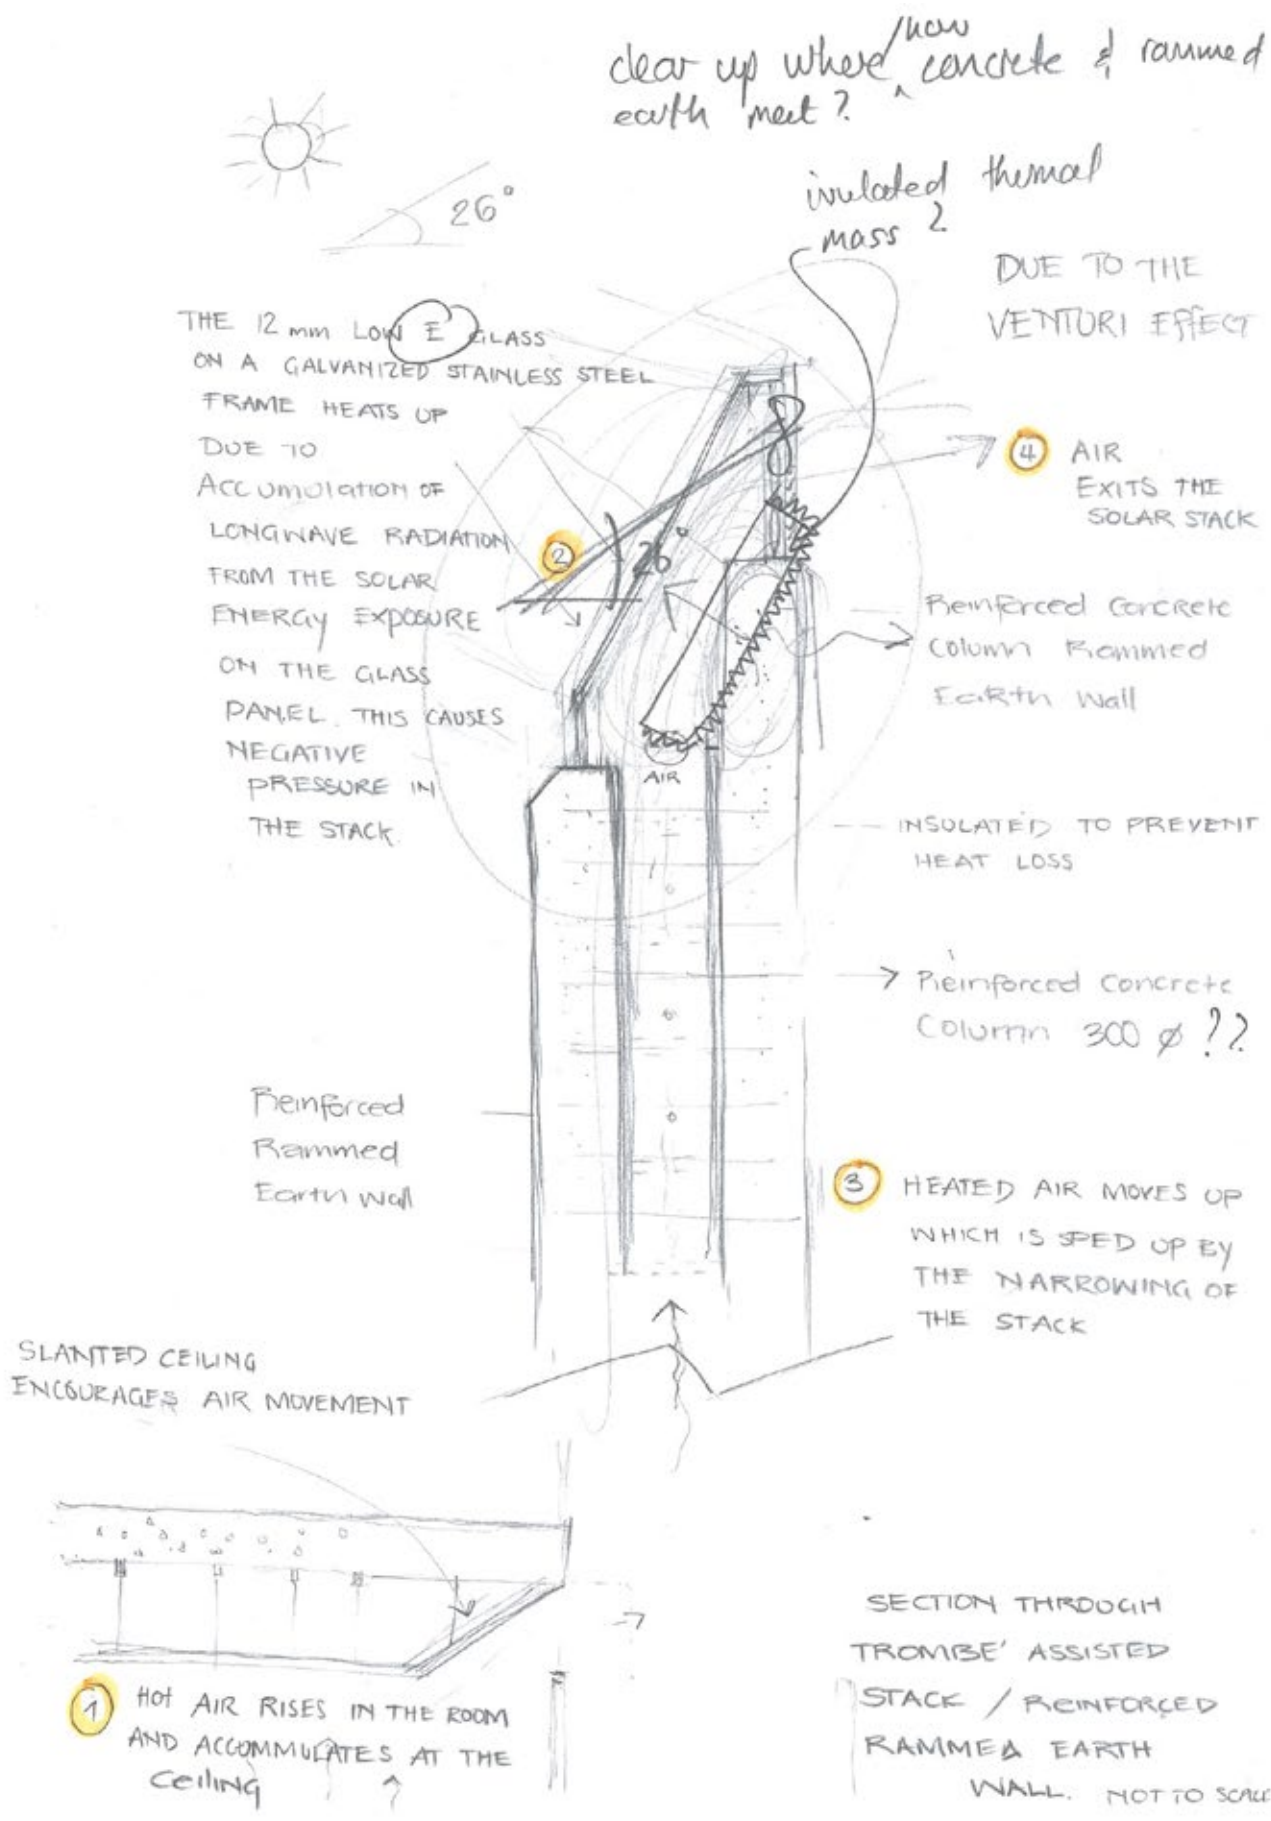 clear up where/how concrete & rammed
earth meet?
26°
insulated thermal
mass?
DUE TO THE
VENTURI EFFECT
THE 12 mm LOW E GLASS
ON A GALVANIZED STAINLESS STEEL
FRAME HEATS UP
DUE TO
ACCUMULATION OF
LONGWAVE RADIATION
FROM THE SOLAR
ENERGY EXPOSURE
ON THE GLASS
PANEL. THIS CAUSES
NEGATIVE
PRESSURE IN
THE STACK
2
26°
AIR
4 AIR
EXITS THE
SOLAR STACK
Reinforced Concrete
Column Rammed
Earth Wall
INSULATED TO PREVENT
HEAT LOSS
Reinforced Concrete
Column 300 ϕ ??
Reinforced
Rammed
Earth Wall
3 HEATED AIR MOVES UP
WHICH IS SPED UP BY
THE NARROWING OF
THE STACK
SLANTED CEILING
ENCOURAGES AIR MOVEMENT
1 HOT AIR RISES IN THE ROOM
AND ACCOMMULATES AT THE
CEILING
SECTION THROUGH
TROMBE' ASSISTED
STACK / REINFORCED
RAMMED EARTH
WALL. NOT TO SCALE